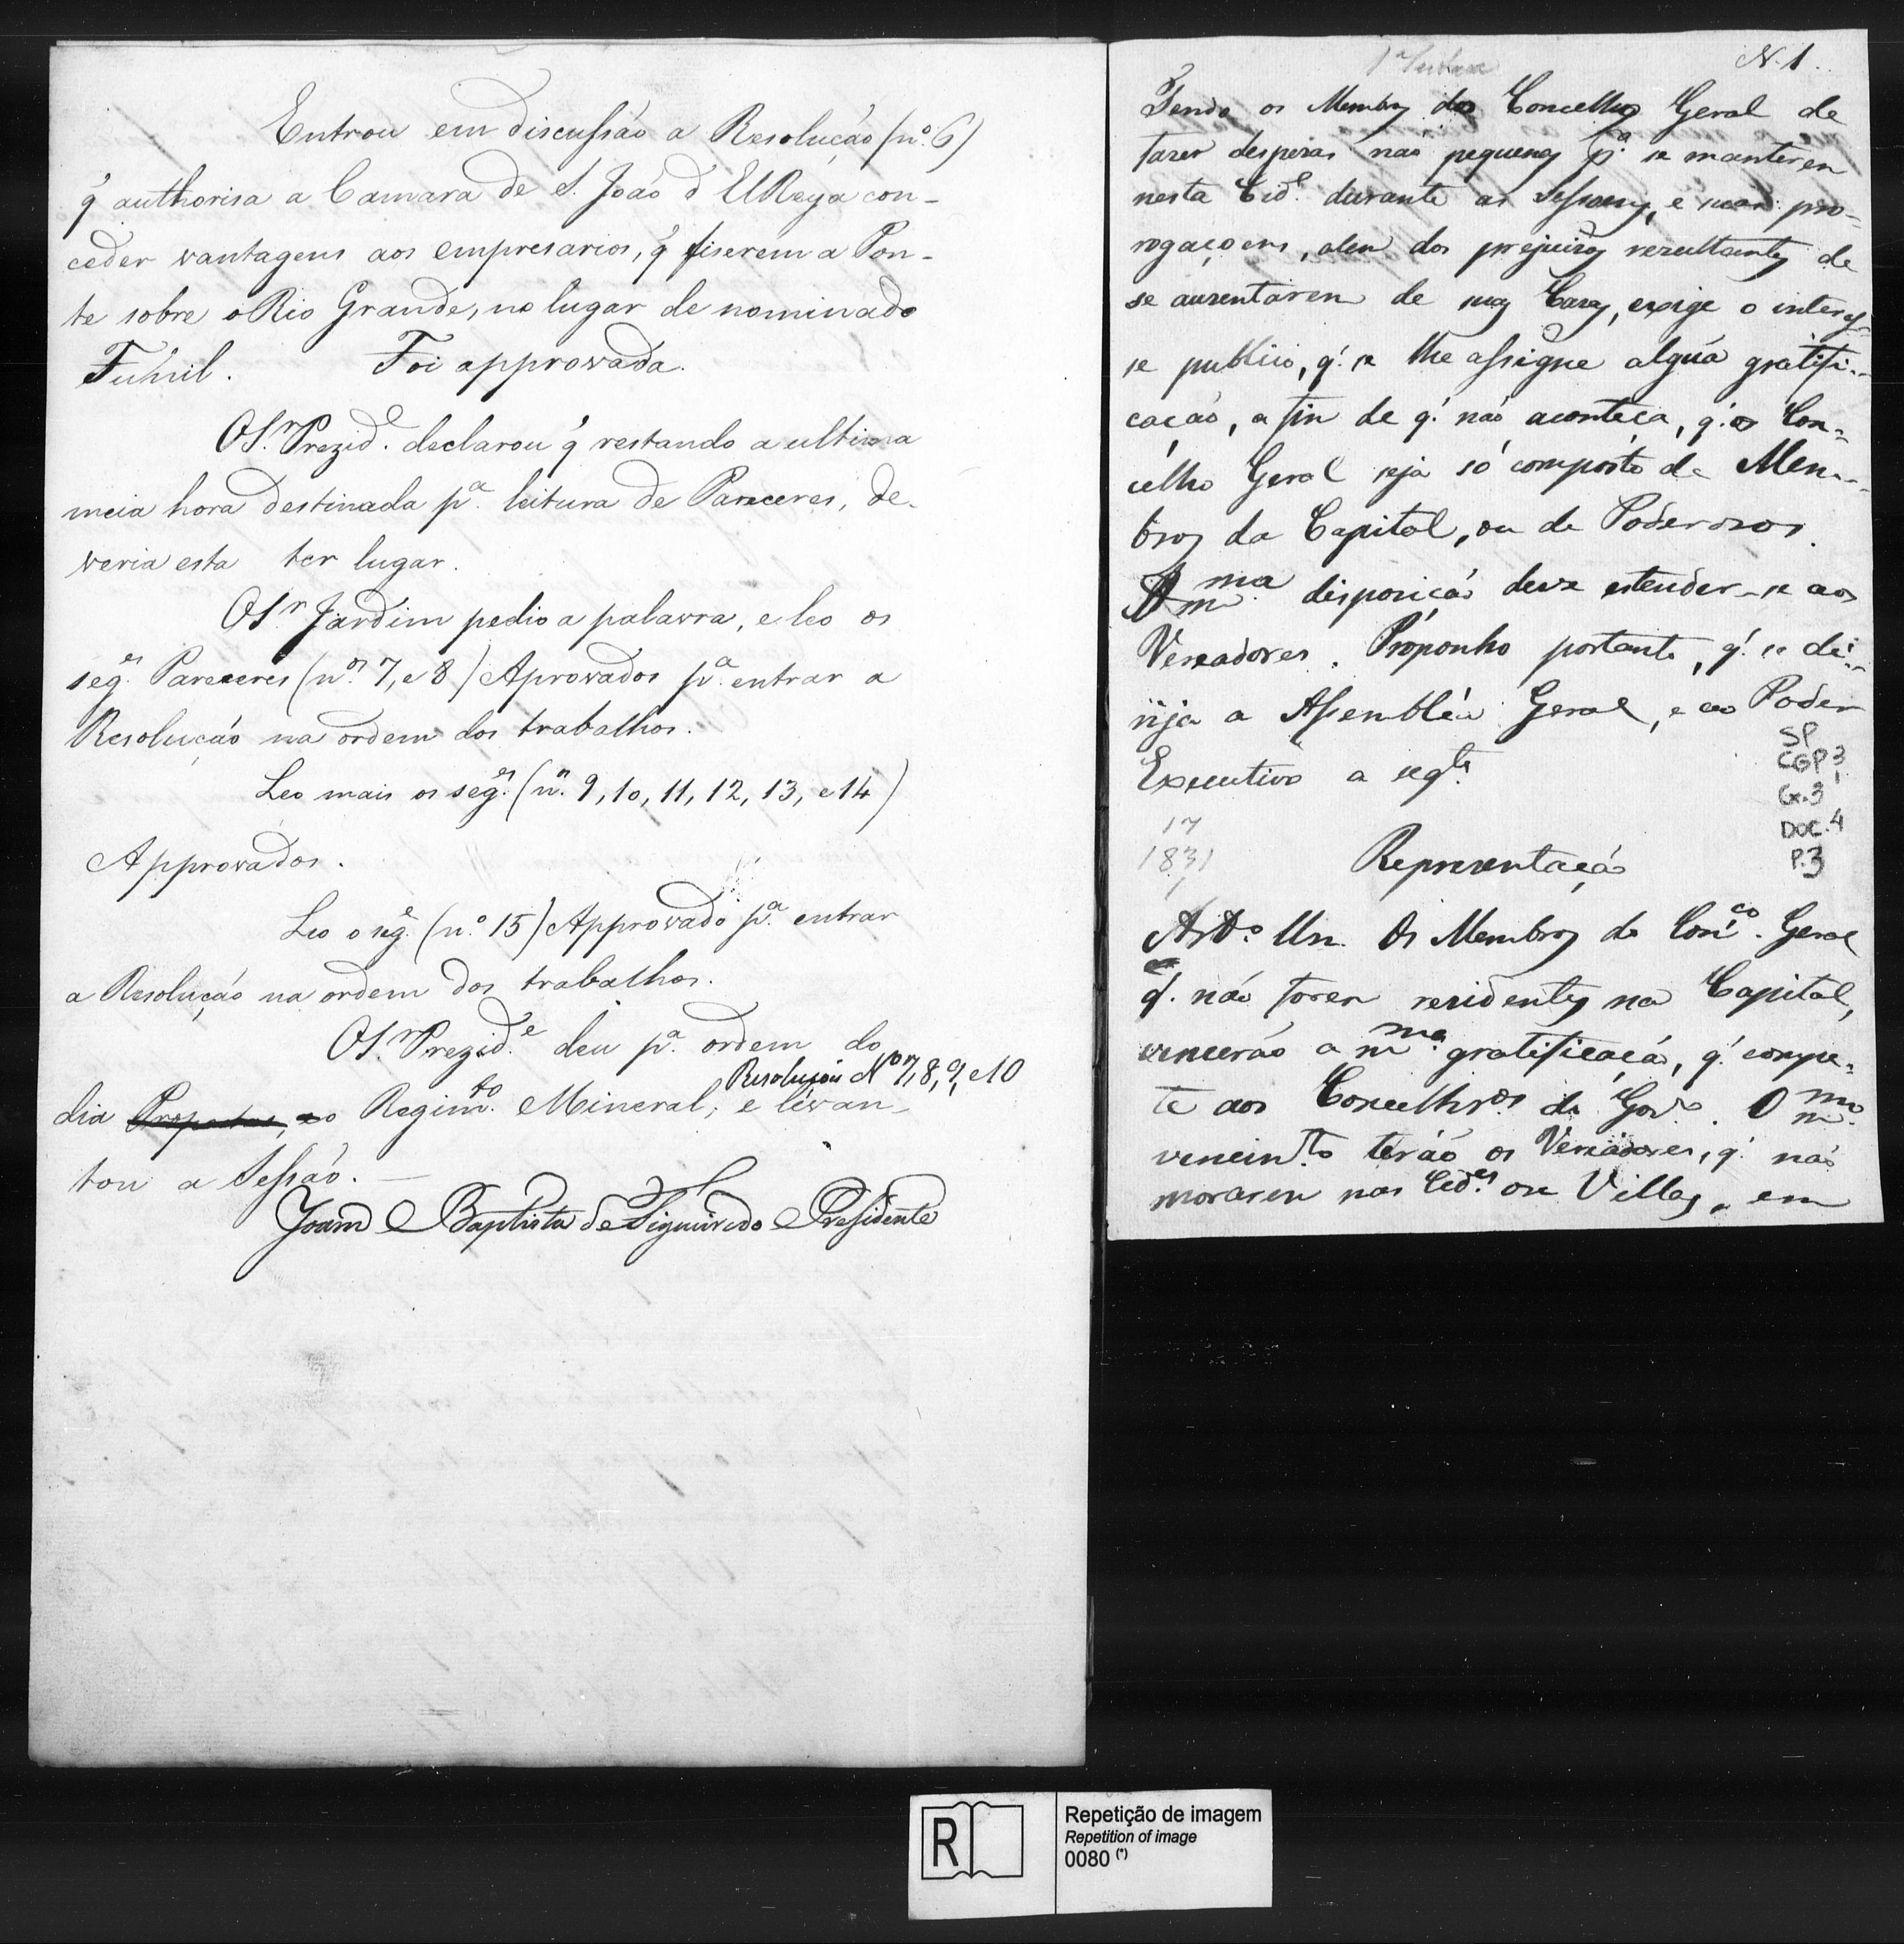 Entrou em discussão a Resolução (nº 6)
q̃ authorisa a Camara de S. João d'ElRey a con-
ceder vantagens aos empresarios, q̃ fiserem a Pon-
te sobre o Rio Grande, no lugar de nominado
Fúnil. Foi approvada.
O Sr. Prezide. declarou q̃ restando a ultima
meia hora destinada pa. leitura de Pareceres, de-
veria esta ter lugar.
O Sr. Jardim pedio a palavra, e leo os
seges. Pareceres (nos. 7, e 8) Aprovados pa. entrar a
Resolução na ordem dos trabalhos.
Leo mais os seges. (n. 9, 10, 11, 12, 13, e 14)
Approvados.
Leo o sege. (nº 15) Approvado pa. entrar
a Resolução na ordem dos trabalhos.
O Sr. Prezide. deu pa. ordem do
Resoluçoẽs Nos 7, 8, 9, e 10
dia Propostas, e o Regimto. Mineral; e levan-
tou a Sessão. —
Joam Baptista de Figueiredo Presidente
N. 1.
Tendo os Membros do Concelho Geral de
fazer despezas não pequenas pa. se manterem
nesta Cide. durante as Sessoens, e suas pro-
rogaçoens, alem dos prejuizos rezultantes de
se auzentarem de suas Cazas, exige o interes-
se publico, q'. se lhe assigne algũa gratifi-
cação, a fim de q'. não aconteça, q'. o Con-
celho Geral seja só composto de Mem-
bros da Capital, ou de Poderosos.
A mma. disposição deve estender-se aos
Vereadores. Proponho portanto, q'. se di-
rija a Assembléa Geral, e ao Poder
Executivo a segte.
SP
CGP 3
1
Cx.3
DOC.4
P.3
17
1831
Representação
Arto. Un. Os Membros do Conco. Geral
q'. não forem rezidentes na Capital,
vencerão a mma. gratificação, q'. compe-
te aos Concelhros. de Govo. O mmo.
vencimto. terão os Vereadores, q'. não
morarem nas Cides. ou Villas, em
R
Repetição de imagem
Repetition of image
0080 (*)